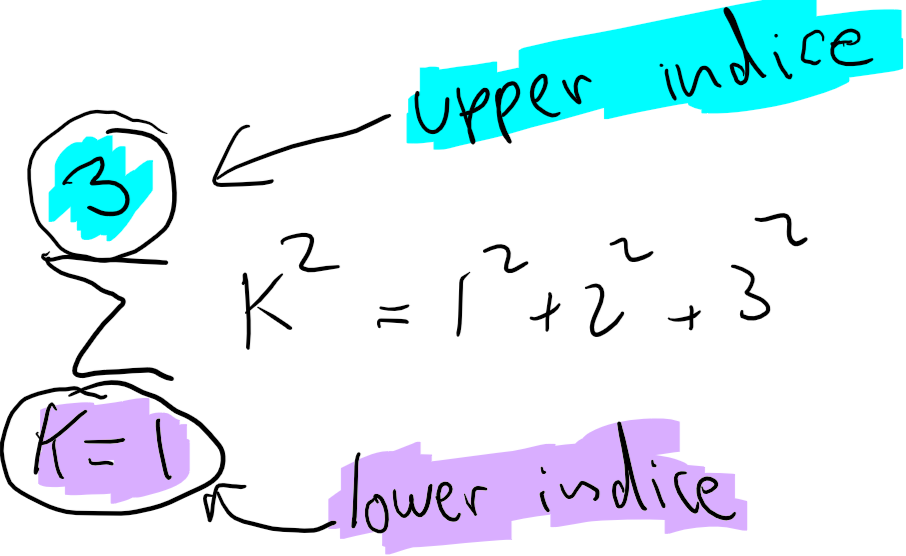 upper indice
3
∑ K² = 1² + 2² + 3²
K = 1
lower indice